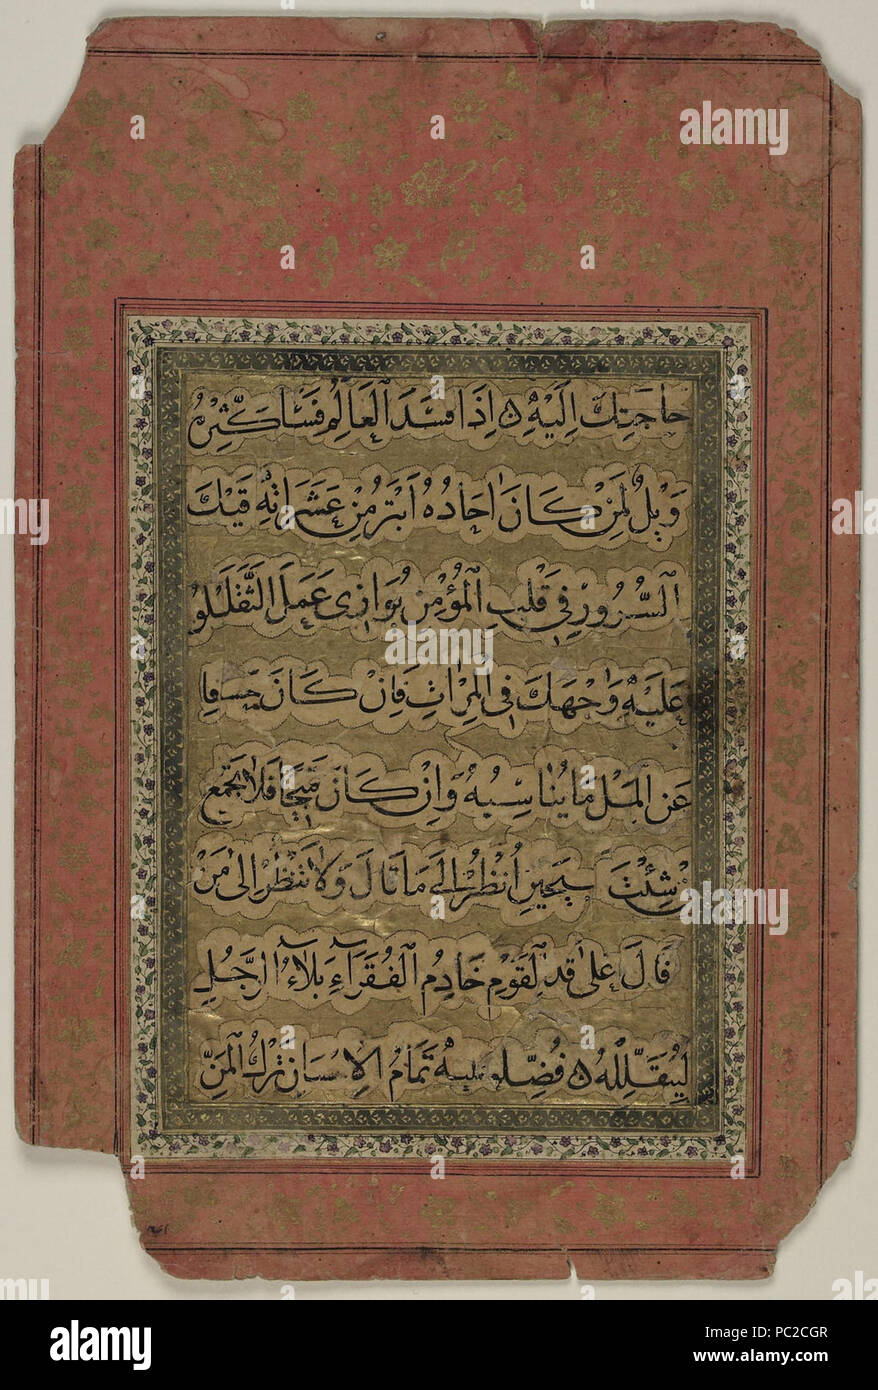 حاجتك اليه اذا فسد العالم فسا كثيره
ويل لمن كان احاده ابتر من عشراته
السرور في قلب المؤمن يوازى عمل الثقل
عليه وجهك في المراث فان كان حسفا
عن المل ما يناسبه وان كان فلا تجمع
شئت انظر الى ما قال ولا تنظر الى من
قال على قد القوم خادم الفقراء بلاء الرجل
فضل تمام الاسان ترك المن
a alamy
alamy
alamy
Image ID: PC2CGR
www.alamy.com